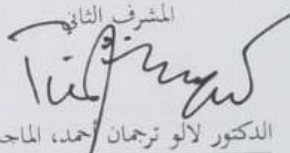 المشرف الثاني
الدكتور لالو ترجمان أحمد، الماجـ